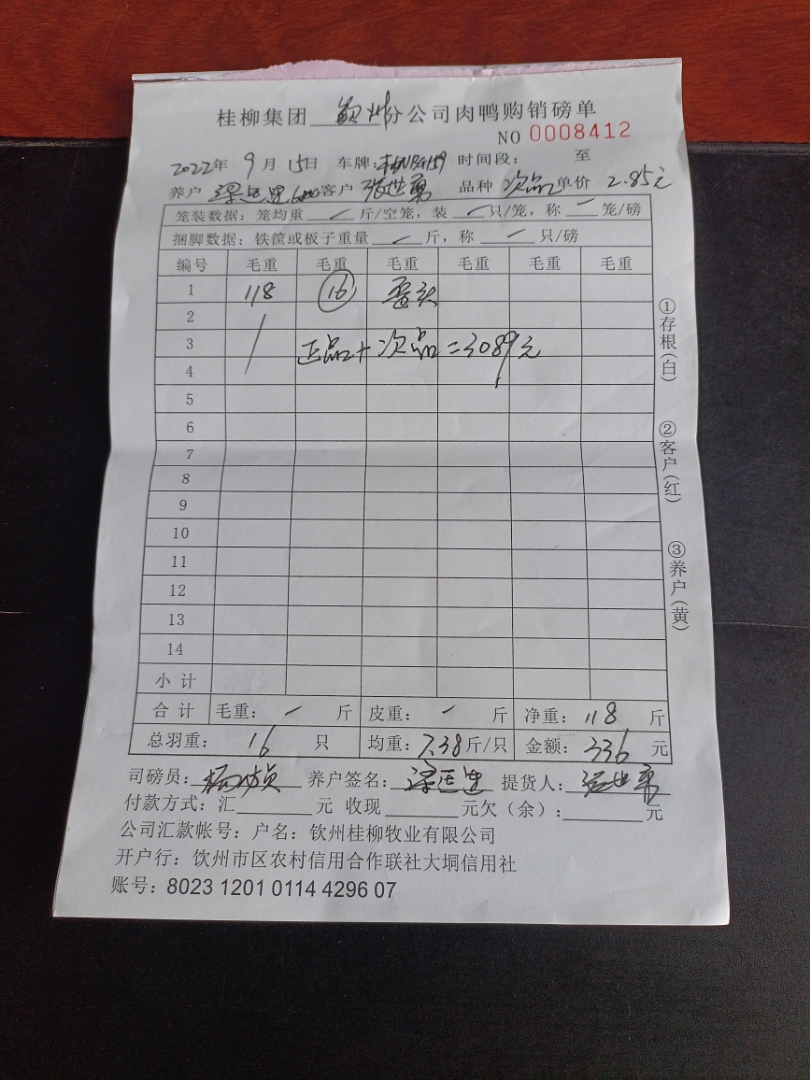 桂柳集团 钦州分公司肉鸭购销磅单
NO 0008412
2022年 9月 15日 车牌: 时间段: 至
养户 客户 张世勇 品种 次品 单价 2.85元
笼装数据: 笼均重 / 斤/空笼, 装 / 只/笼, 称 / 笼/磅
捆脚数据: 铁筐或板子重量 / 斤, 称 / 只/磅
编号 毛重 毛重 毛重 毛重 毛重 毛重
1 118 16 歪头
2
3 正品+次品=3089元
4
5
6
7
8
9
10
11
12
13
14
小计
合计 毛重: / 斤 皮重: / 斤 净重: 118 斤
总羽重: 16 只 均重: 7.38斤/只 金额: 336 元
司磅员: 养户签名: 提货人: 张世勇
付款方式: 汇 元 收现 元欠(余): 元
公司汇款帐号: 户名: 钦州桂柳牧业有限公司
开户行: 钦州市区农村信用合作联社大垌信用社
账号: 8023 1201 0114 4296 07
①存根(白)
②客户(红)
③养户(黄)